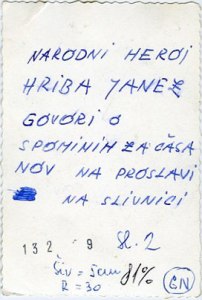 NARODNI HEROJ
HRIBA JANEZ
GOVORI O
SPOMINIH ZA ČASA
NOV NA PROSLAVI
NA SLIVNICI
132 9 Sl. 2
Šiv = 5cm 81%
R = 30 GN